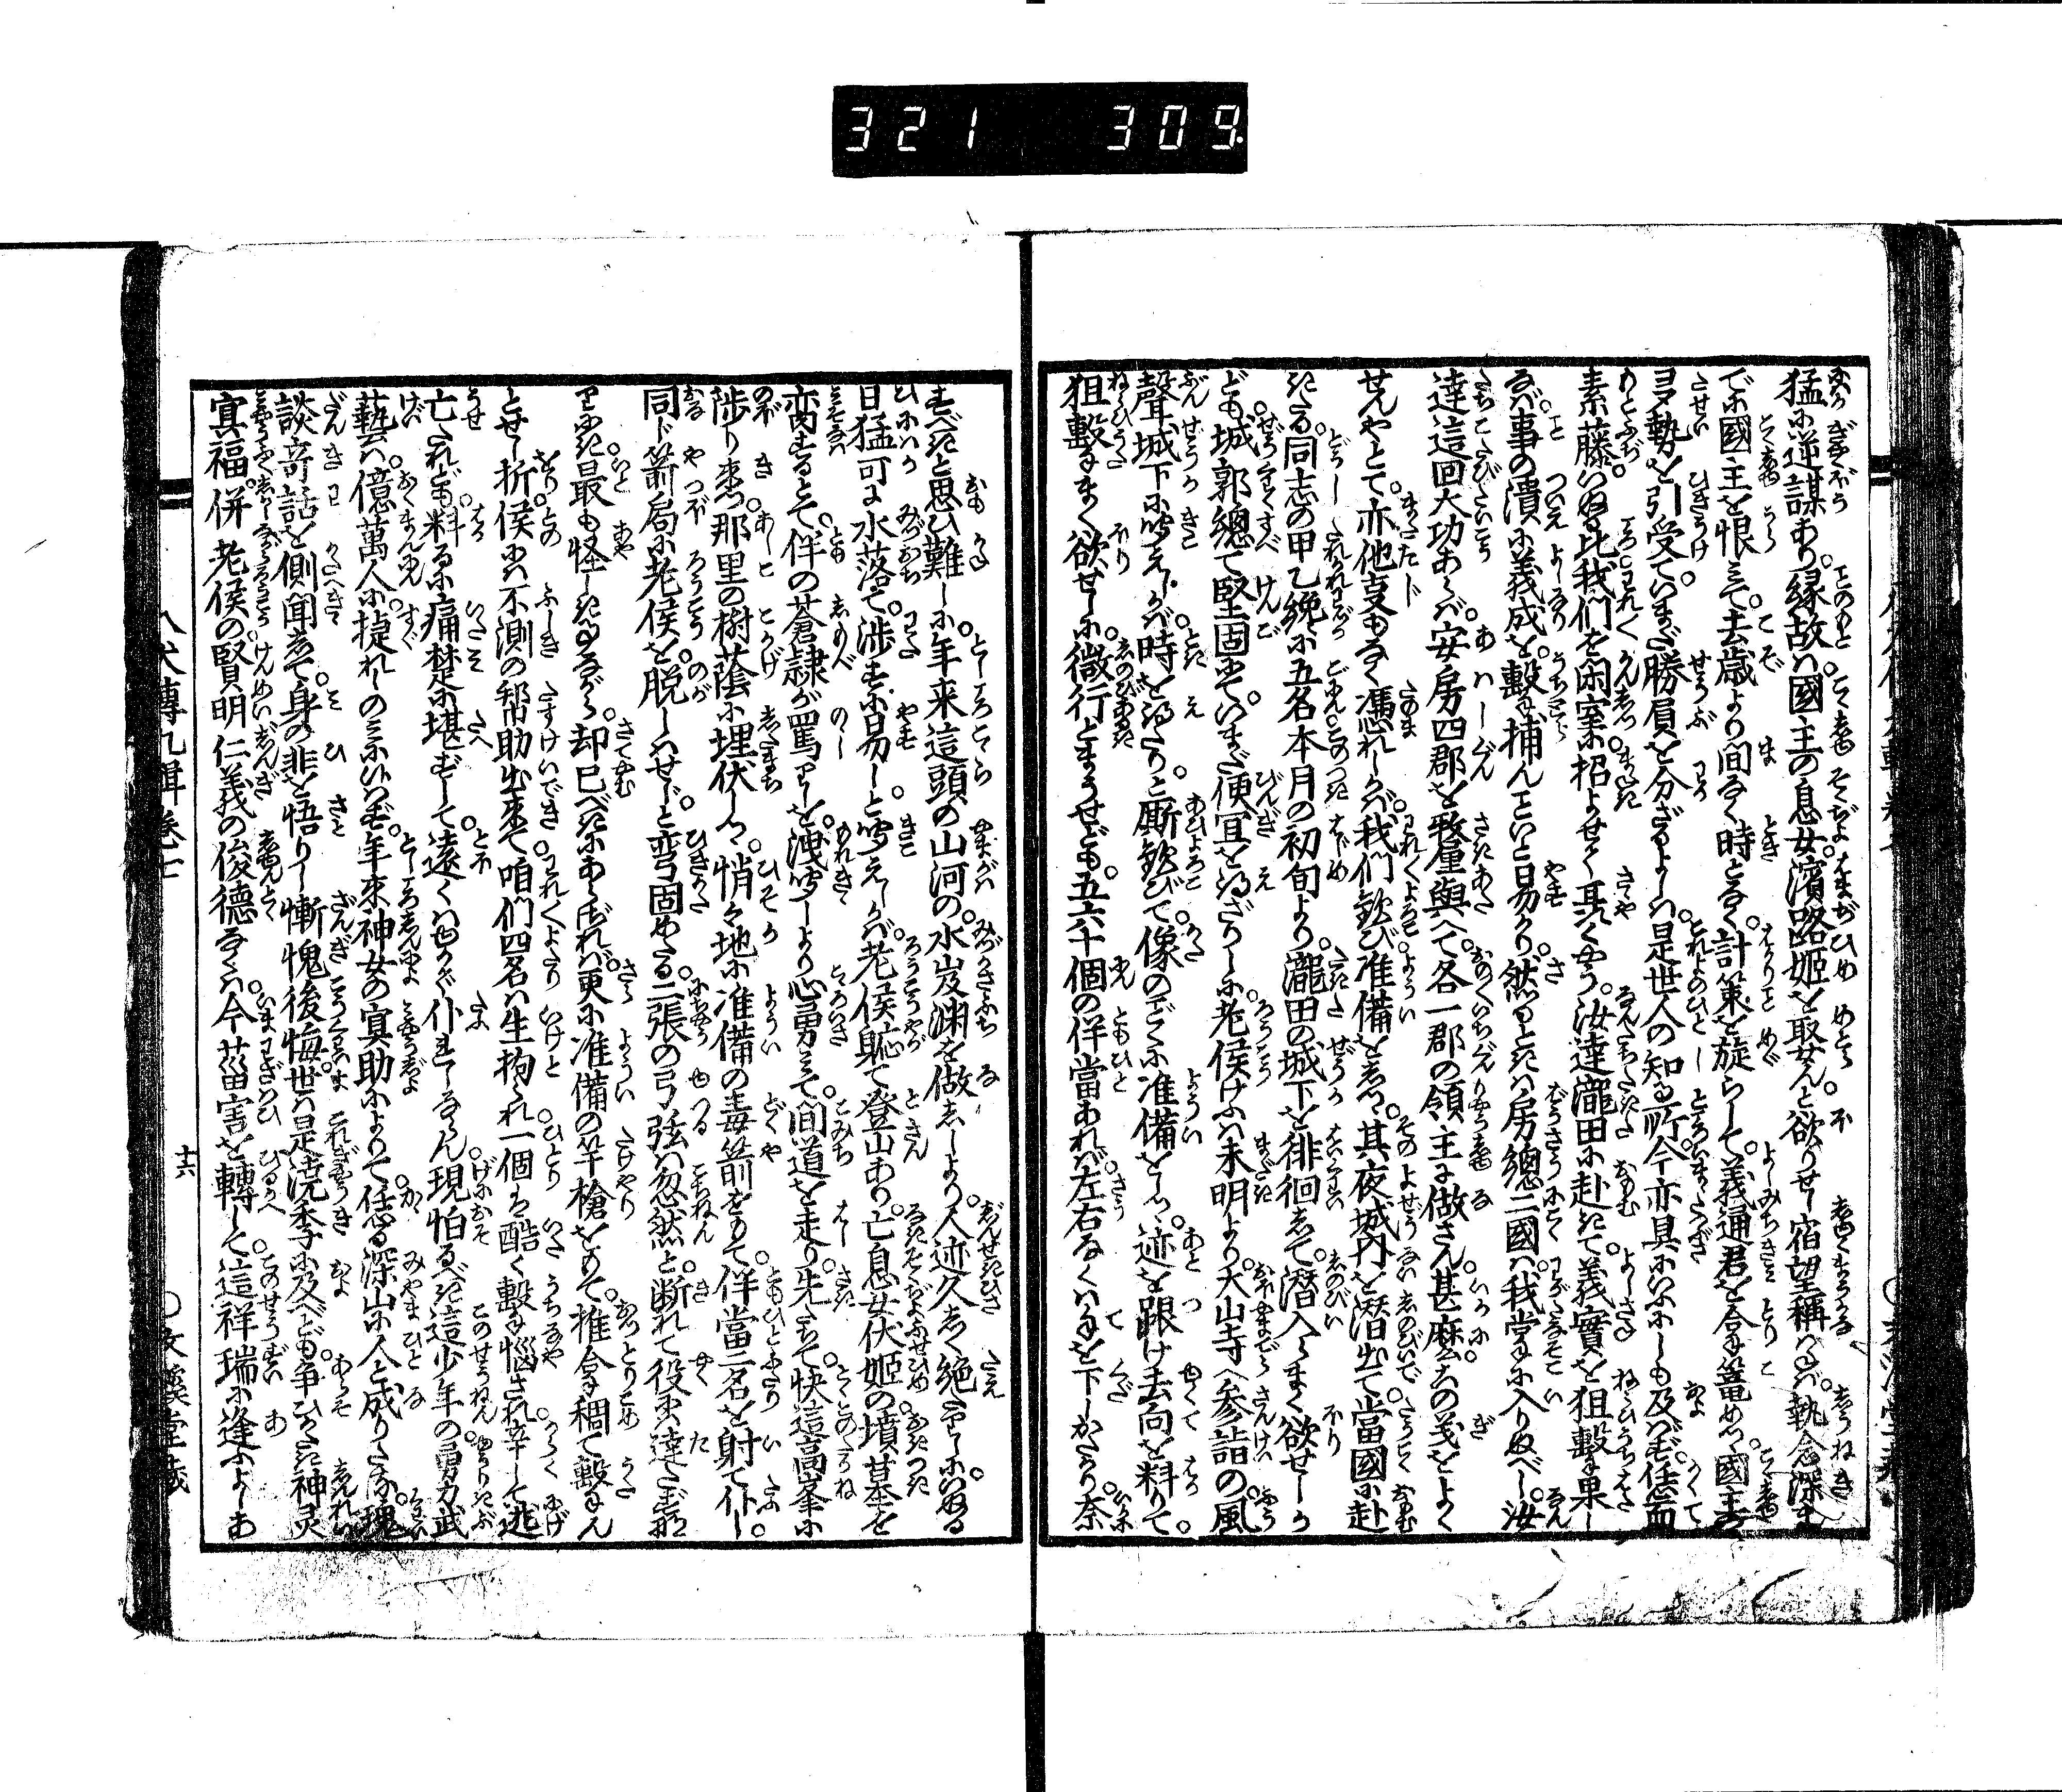 321 309
猛に逆謀あり。縁故は國主の息女。濱路姫を娶んと欲りせし。宿望稱はねば。執念深きま
でに國主を恨みて。去歳より間なく時となく。計策を旋らして。義通君を合手篭めつ。國主
ヨリ勢を引受て。いまだ勝負を分ざるよしは。是世人の知る所。今亦具にいふにしも及ばず。恁而
素藤いぬる比我們を閑室に招よせて耳語くやう。汝達瀧田に赴きて。義實を狙撃果し
なば。事の潰に義成を。撃も捕んこといと易かり。然るときは房總二國は。我掌に入りぬべし。汝
達這回大功あらば。安房四郡を整厘與へて。各一郡の領主に做さん。甚麼この義をよく
せんやとて。亦他事もなく憑れしかば。我們歡び准備をしつ。其夜城内を潜出て當國に赴
きたる。同志の甲乙纔に五名。本月の初旬より。瀧田の城下を徘徊して。潜入らまく欲せしか
ども。城郭總て堅固にて。いまだ便冝を得ざりしに。老侯けふは未明より。大山寺へ参詣の風
聲城下に聞えしかば。時を得たりと。厮歡びて。像のごとくに准備をしつ。迹を跟け去向を料りて。
狙撃まく欲せしに。微行とまうせども。五六十個の伴當あれば。左右なくは手を下しかたかり。奈
すべきと思ひ難しに。年来這頭の山河の。水岌渊を做ししより。人迹久しく絶たりしに。いぬる
日猛可に水落て。渉すに易しと聞えしかば。老侯恥て登山あり。亡息女伏姫の。墳墓を
齋するとて。伴の蒼隷が罵りしを。洩聞しより心勇みて。間道を走り。先たちて快這高峯に
陟り来つ。那里の樹蔭に埋伏しつ。悄々地に准備の毒箭をもて。伴當二名を射て仆し。
同じ箭局に老侯を。脱しはせじと弯固めたる。二張の弓弦は忽然と。断れて役に達たずなり
たりき。最も怪しきことながら。却已べきにあらざれば。更に准備の竿槍をもて。推合稠て撃も
とせし折。侯には不測の幇助出来て。咱們四名は生拘られ。一個は酷く撃悩され。辛して逃
亡たれども。料るに痛楚に堪ずして。遠くは得ゆかず仆れてならん。現怕るべき這少年の勇力武
藝は。億萬人に捷れしのみにはいはず。年来神女の冥助によりて。恁る深山に人と成りたる。瑰
談奇話を側聞して。身の非を悟りし慚愧後悔。世は是澆季に及べども。争ひかたき神灵
冥福。併老侯の賢明仁義の俊徳ならば。今茲害を轉して這祥瑞に逢ふよしあ
八犬傳九輯巻七
十六
○文溪堂藏